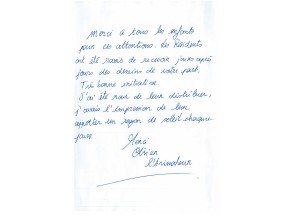 Merci à tous les enfants
pour ces attentions. Les Résidents
ont été ravis de recevoir jours après
jours des dessins de votre part,
Très bonne initiative.
J'ai été ravi de leur distribuer,
j'avais l'impression de leur
apporter un rayon de soleil chaque
jour
l'Animateur